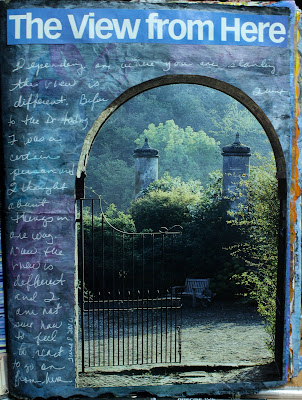 The View from Here
Depending on where you are standing
the view is
different. Before
to the
I was a
certain
person and
I thought
about
things in
one way.
Now the
view is
different
and I
am not
sure how
to feel
to react
to go on
from here